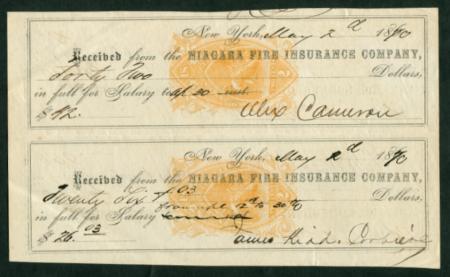 New York, May 2d 1870
Received from the NIAGARA FIRE INSURANCE COMPANY,
Forty Two Dollars,
in full for Salary to Ap 30 inst.
$42. Alex Cameron
New York, May 2d 1870
Received from the NIAGARA FIRE INSURANCE COMPANY,
Twenty Six 03 Dollars,
in full for Salary from 2d to 30th
$26.03 James Kidd